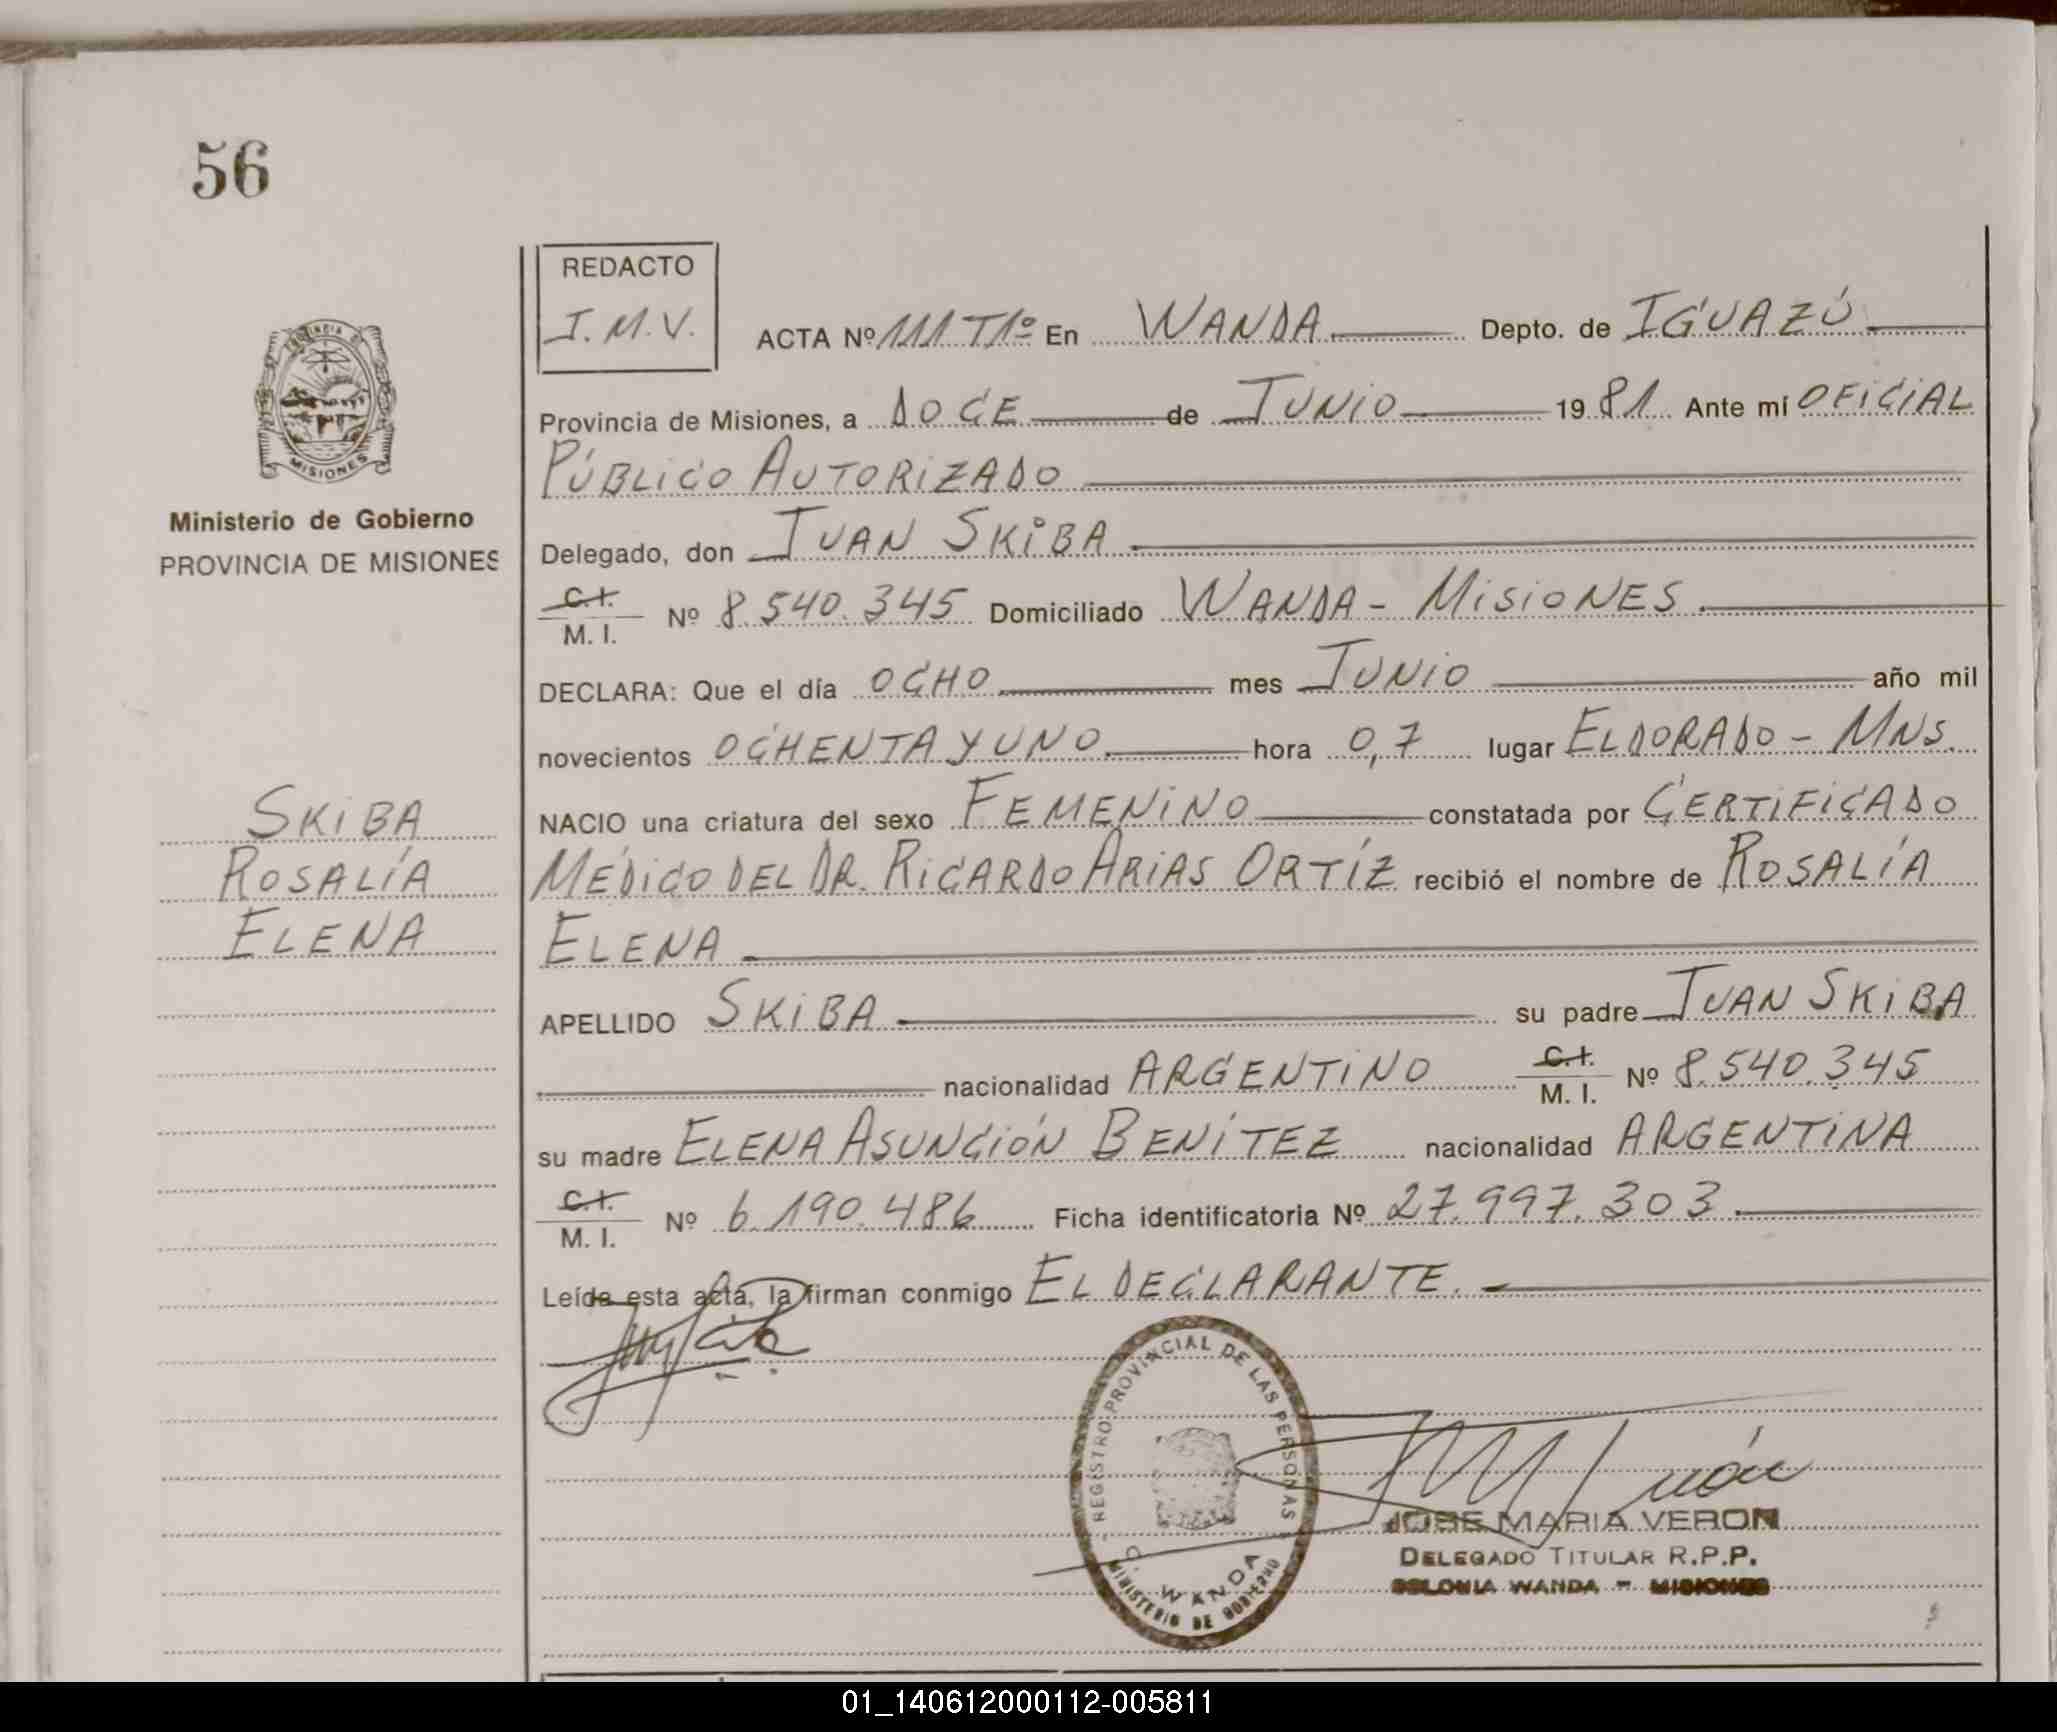 56
REDACTO
I.M.V.
ACTA Nº 111 T1º En WANDA Depto. de IGUAZÚ
Provincia de Misiones, a DOCE de JUNIO 1981 Ante mí OFICIAL
PÚBLICO AUTORIZADO
Delegado, don JUAN SKIBA
C.I. M.I. Nº 8.540.345 Domiciliado WANDA - MISIONES.
DECLARA: Que el día OCHO mes JUNIO año mil
novecientos OCHENTA Y UNO hora 0,7 lugar ELDORADO - MNS.
NACIO una criatura del sexo FEMENINO constatada por CERTIFICADO
MÉDICO DEL DR. RICARDO ARIAS ORTÍZ recibió el nombre de ROSALÍA
ELENA
APELLIDO SKIBA su padre JUAN SKIBA
nacionalidad ARGENTINO C.I. M.I. Nº 8.540.345
su madre ELENA ASUNCIÓN BENÍTEZ nacionalidad ARGENTINA
C.I. M.I. Nº 6.190.486 Ficha identificatoria Nº 27.997.303.
Leída esta acta, la firman conmigo EL DECLARANTE.
PROVINCIA
MISIONES
Ministerio de Gobierno
PROVINCIA DE MISIONES
SKIBA
ROSALÍA
ELENA
REGISTRO PROVINCIAL DE LAS PERSONAS
WANDA
MINISTERIO DE GOBIERNO
JOSE MARIA VERON
DELEGADO TITULAR R.P.P.
COLONIA WANDA - MISIONES
01_140612000112-005811